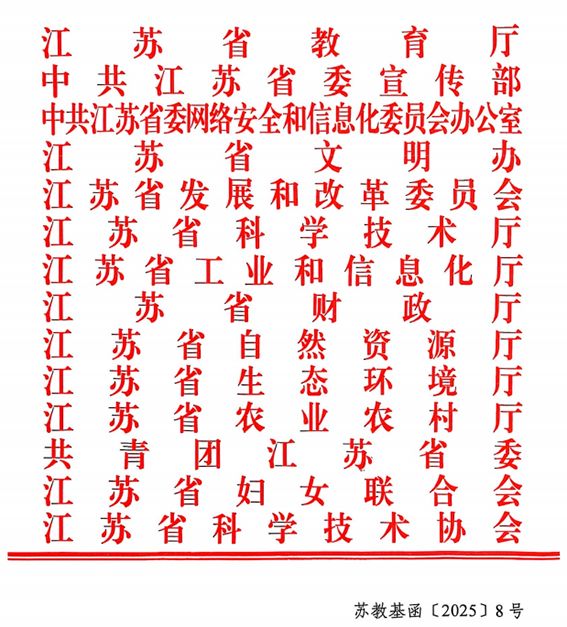 江苏省教育厅
中共江苏省委宣传部
中共江苏省委网络安全和信息化委员会办公室
江苏省文明办
江苏省发展和改革委员会
江苏省科学技术厅
江苏省工业和信息化厅
江苏省财政厅
江苏省自然资源厅
江苏省生态环境厅
江苏省农业农村厅
共青团江苏省委
江苏省妇女联合会
江苏省科学技术协会
苏教基函〔2025〕8号